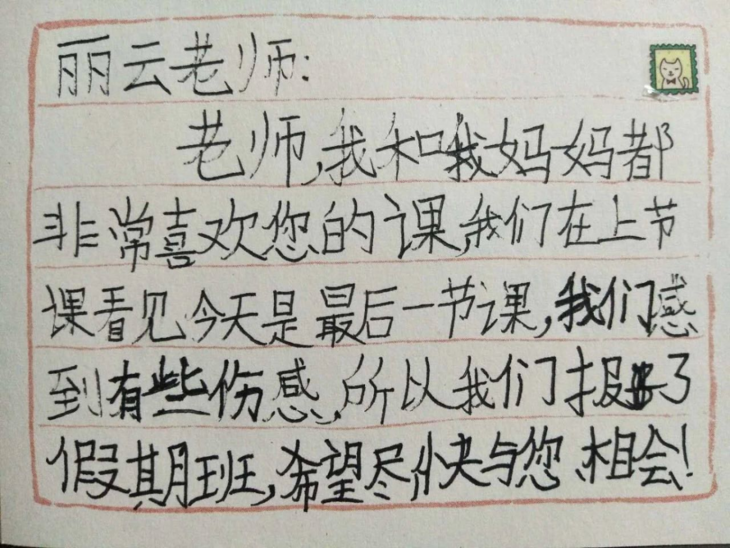 丽云老师：
老师，我和我妈妈都
非常喜欢您的课，我们在上节
课看见今天是最后一节课，我们感
到有些伤感，所以我们报了
假期班，希望尽快与您相会！